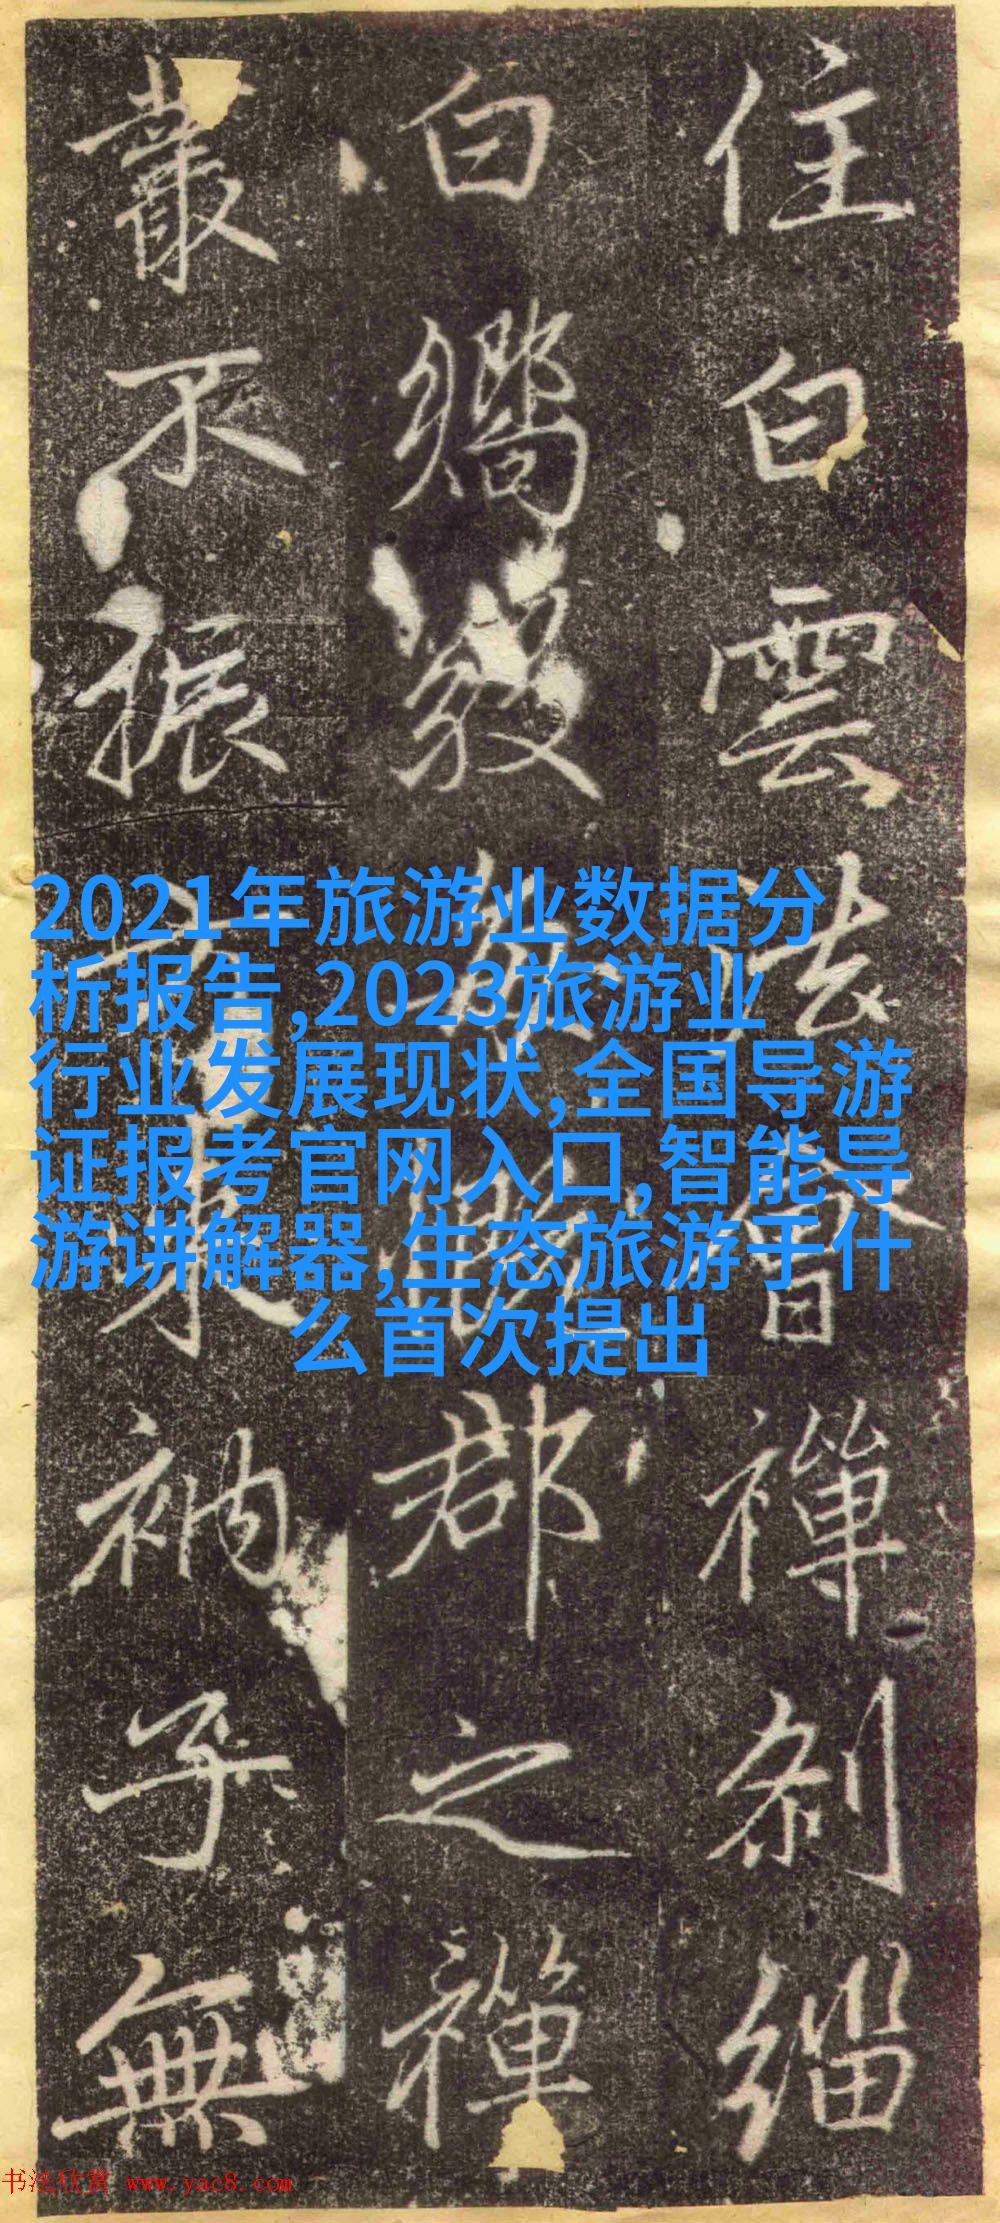 住白雲法會禪剎緇
白
郡之禪
叢不振
衲子無
2021年旅游业数据分
析报告,2023旅游业
行业发展现状,全国导游
证报考官网入口,智能导
游讲解器,生态旅游于什
么首次提出
书法欣赏 www.yac8.com